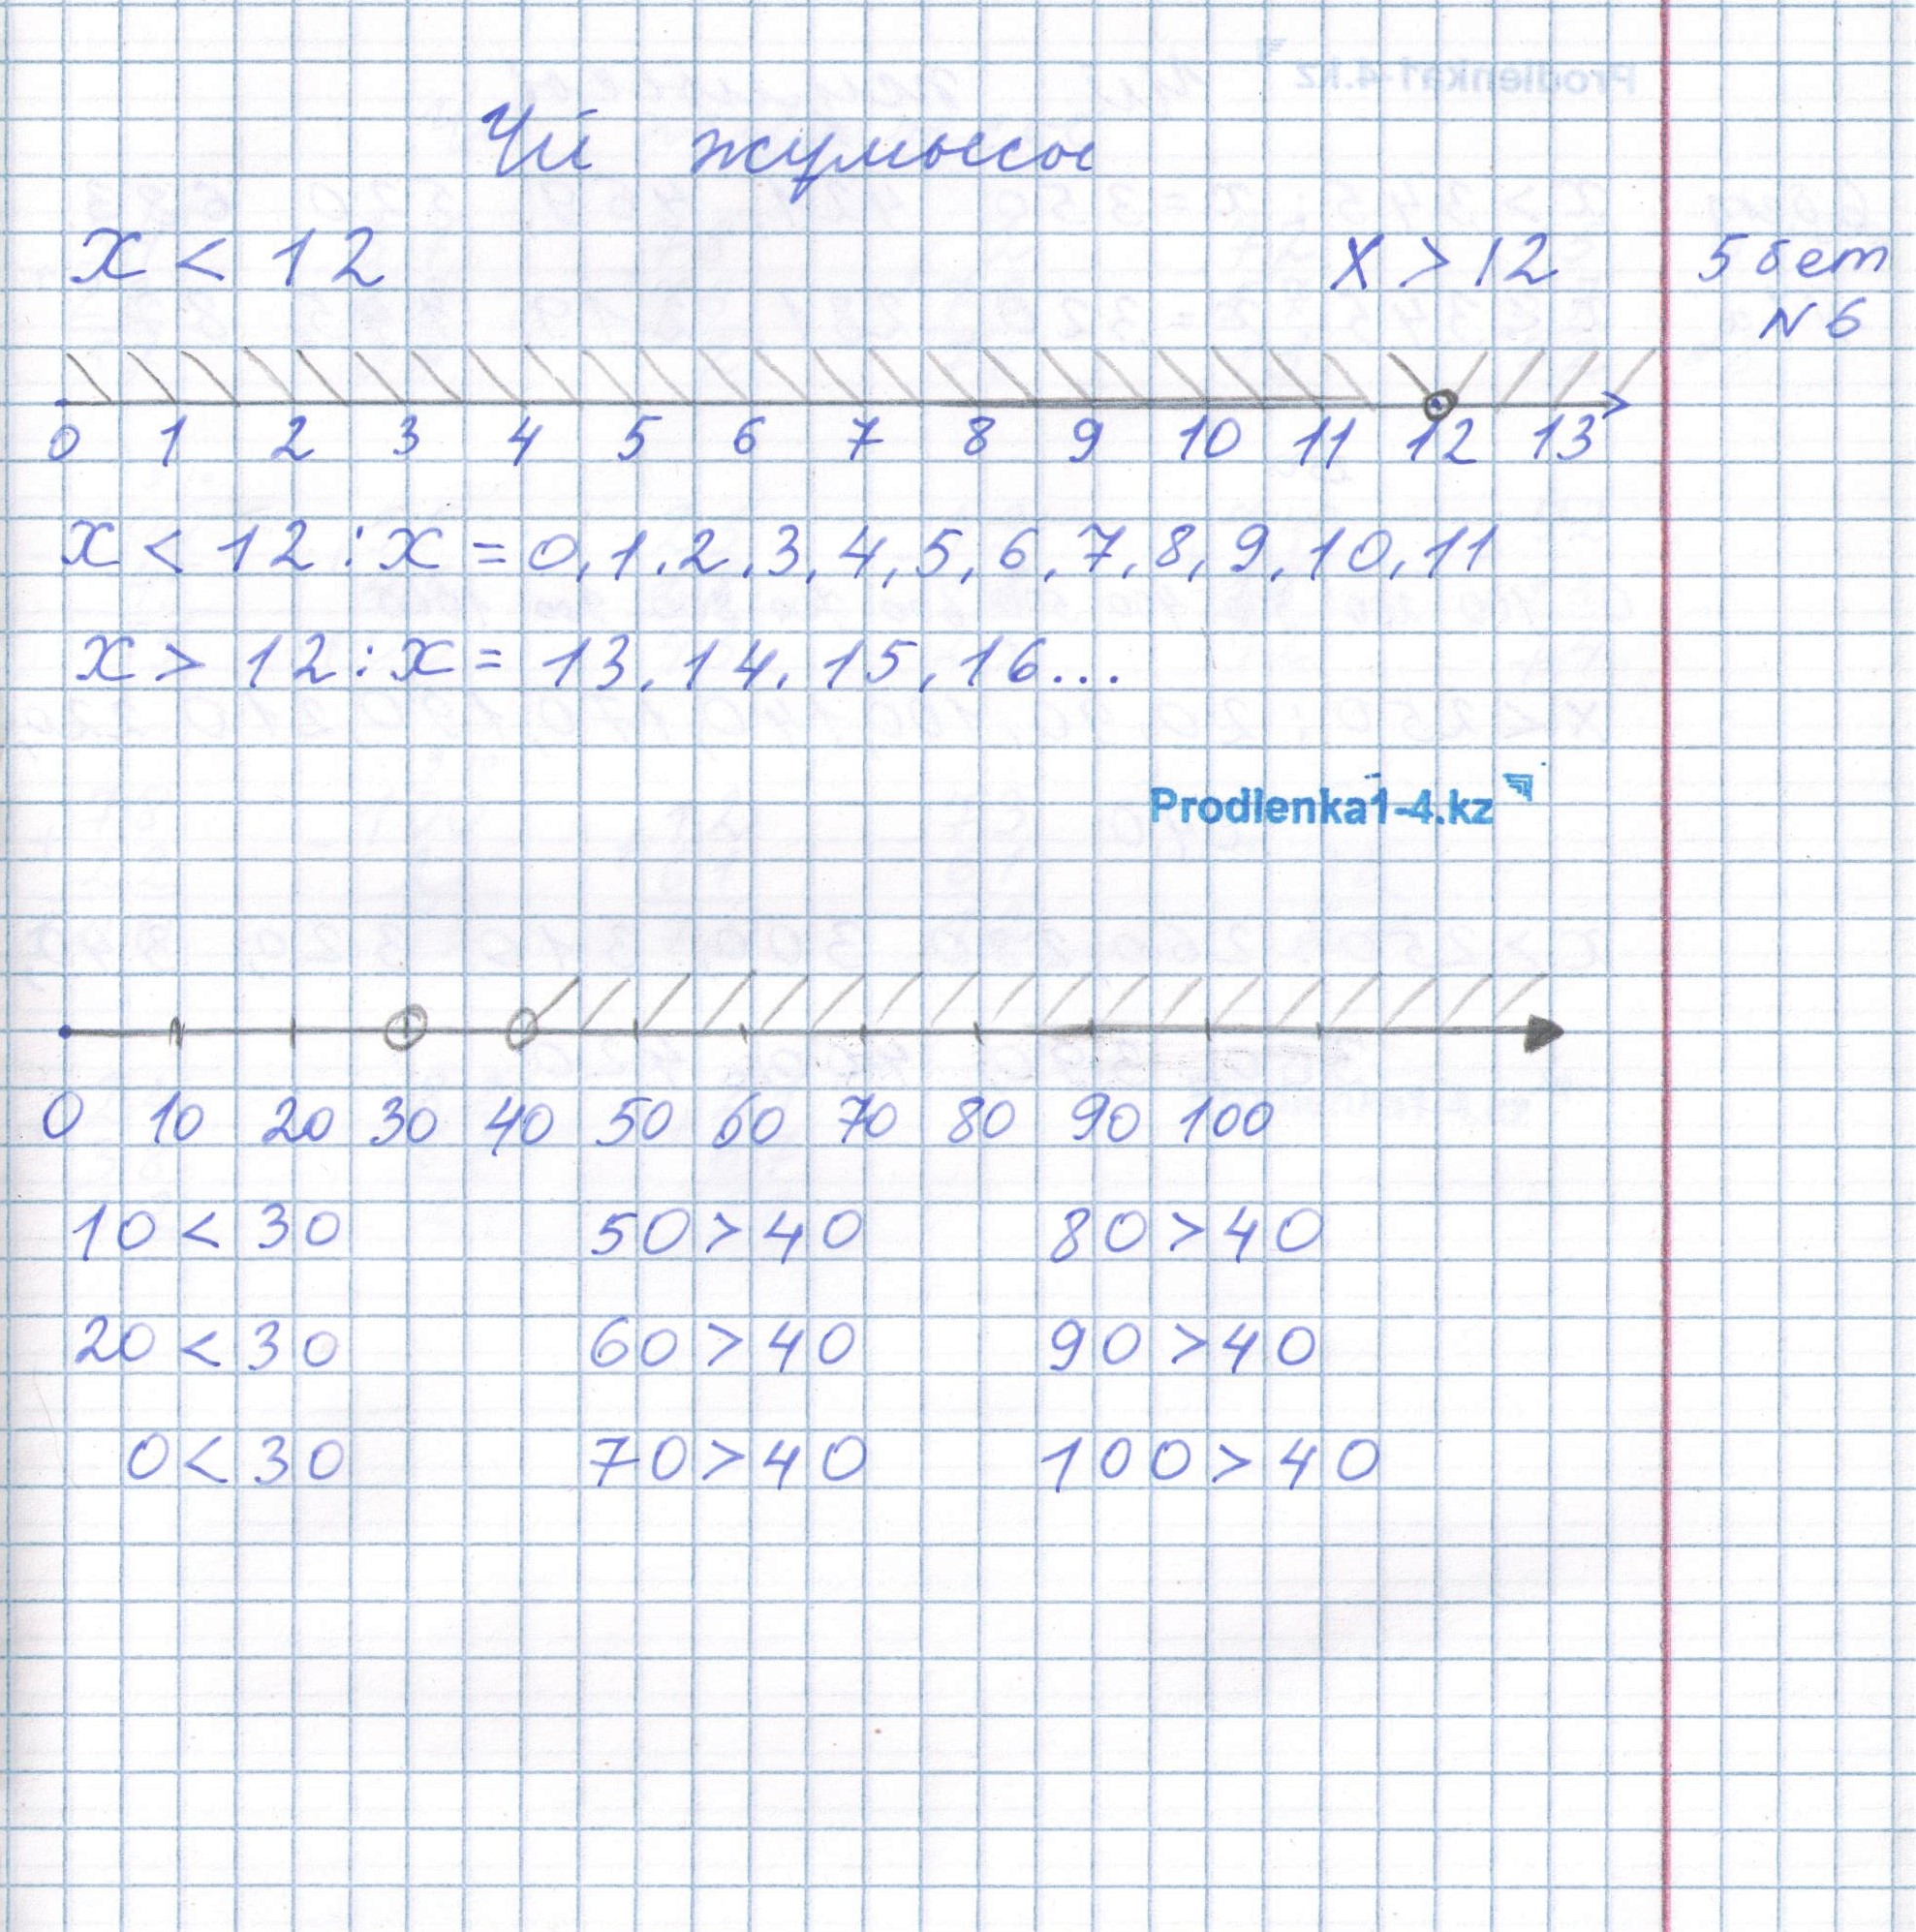 Үй жұмысы
x < 12 x > 12 5 бет
N 6
0 1 2 3 4 5 6 7 8 9 10 11 12 13
x < 12 : x = 0, 1, 2, 3, 4, 5, 6, 7, 8, 9, 10, 11
x > 12 : x = 13, 14, 15, 16...
Prodlenka1-4.kz
0 10 20 30 40 50 60 70 80 90 100
10 < 30 50 > 40 80 > 40
20 < 30 60 > 40 90 > 40
0 < 30 70 > 40 100 > 40